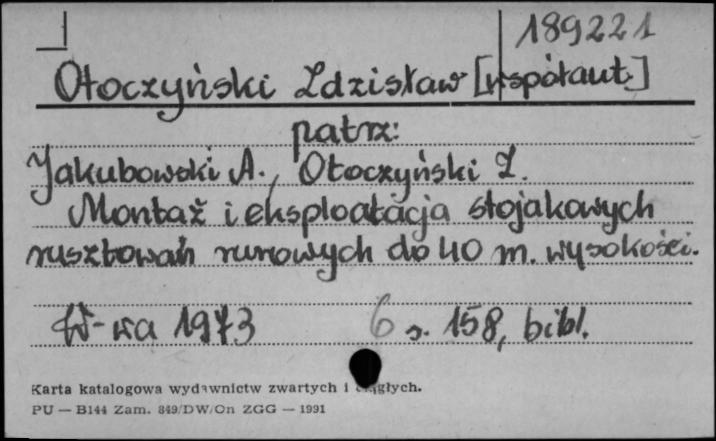 189221
Otoczyński Zdzisław [współaut.]
patrz:
Jakubowski A., Otoczyński Z.
Montaż i eksploatacja stojakowych
rusztowań rurowych do 40 m. wysokości.
W-wa 1973 6 s. 158, bibl.
Karta katalogowa wydawnictw zwartych i ciągłych.
PU — B144 Zam. 849/DW/On ZGG — 1991